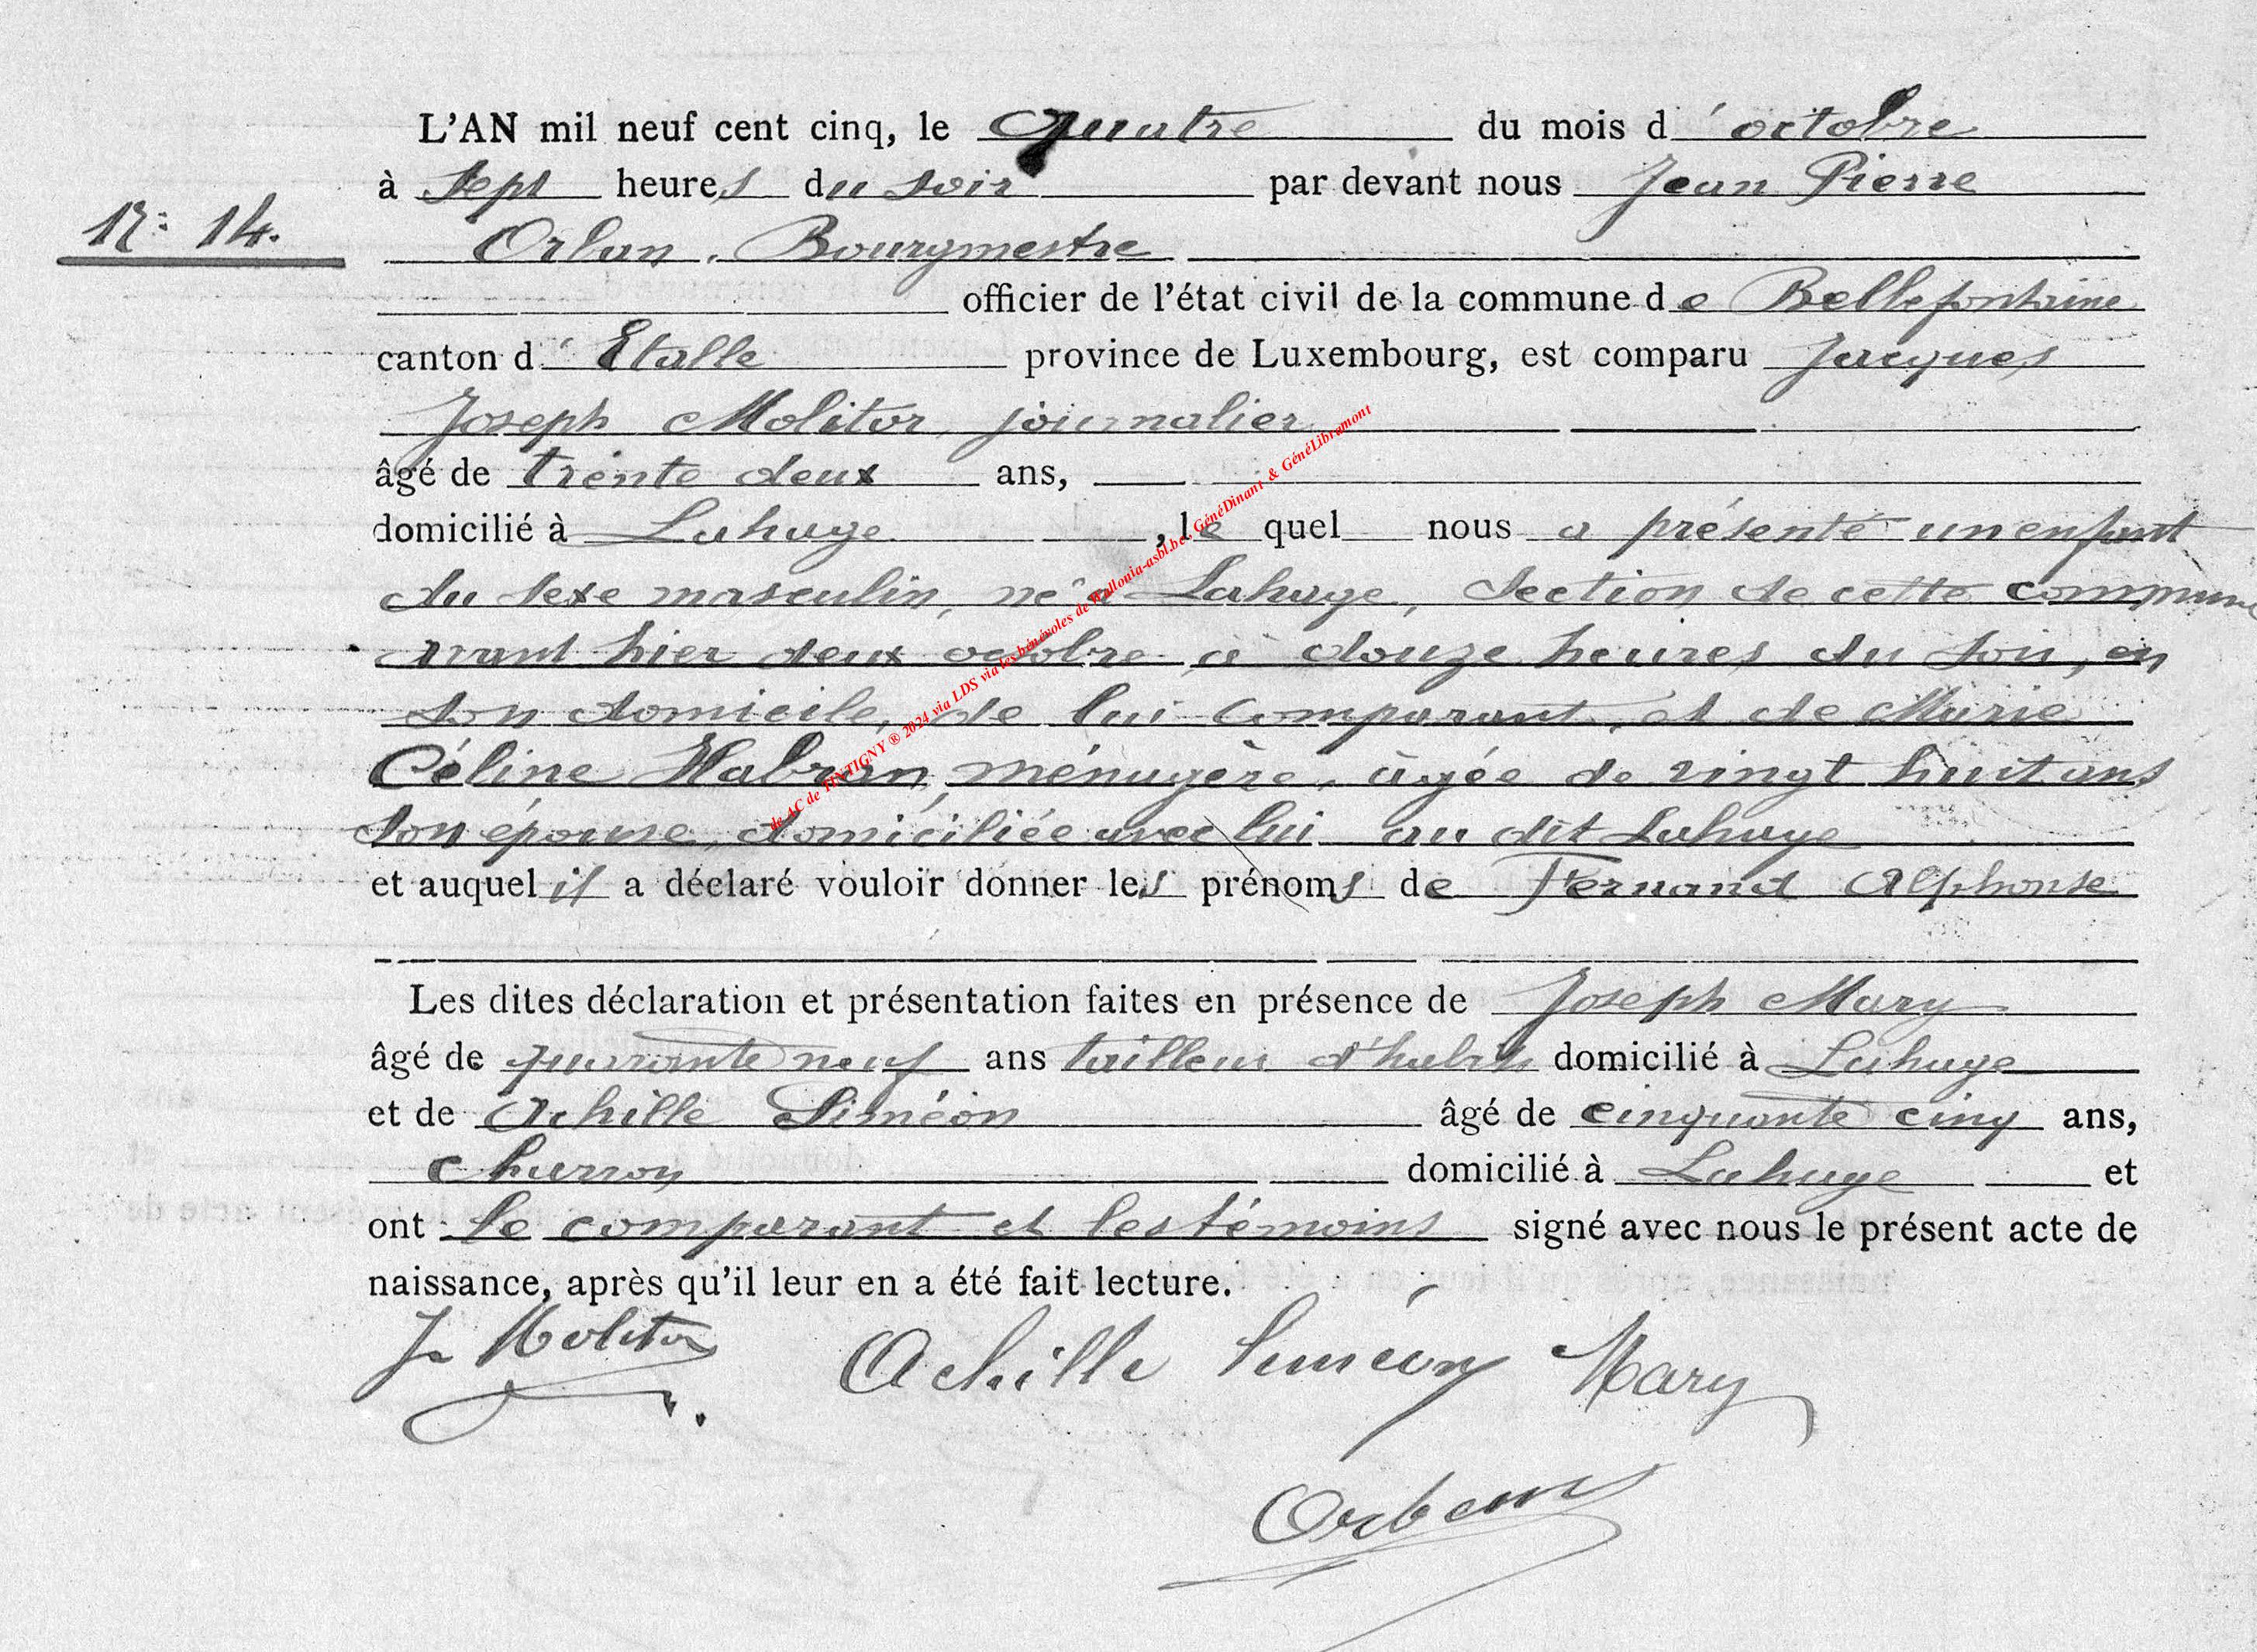 L'AN mil neuf cent cinq, le quatre du mois d'octobre
à sept heures du soir par devant nous Jean Pierre
N° 14.
Orban, Bourgmestre
officier de l'état civil de la commune de Bellefontaine
canton d'Etalle province de Luxembourg, est comparu Jacques
Joseph Molitor, journalier
âgé de trente deux ans,
domicilié à Lahage, le quel nous a présenté un enfant
du sexe masculin, né à Lahage, section de cette commune
avant hier deux octobre à douze heures du soir, en
son domicile, de lui comparant et de Marie
Céline Habran, ménagère, âgée de vingt huit ans
son épouse, domiciliée avec lui au dit Lahage
et auquel il a déclaré vouloir donner les prénoms de Fernand Alphonse
Les dites déclaration et présentation faites en présence de Joseph Mary
âgé de quarante neuf ans tailleur d'habits domicilié à Lahage
et de Achille Siméon âgé de cinquante cinq ans,
charron domicilié à Lahage et
ont le comparant et les témoins signé avec nous le présent acte de
naissance, après qu'il leur en a été fait lecture.
J Molitor Achille Siméon Mary
Orban
de AC de TINTIGNY ® 2024 via LDS via les bénévoles de Wallonia-asbl.be, GénéDinant & GénéLibramont